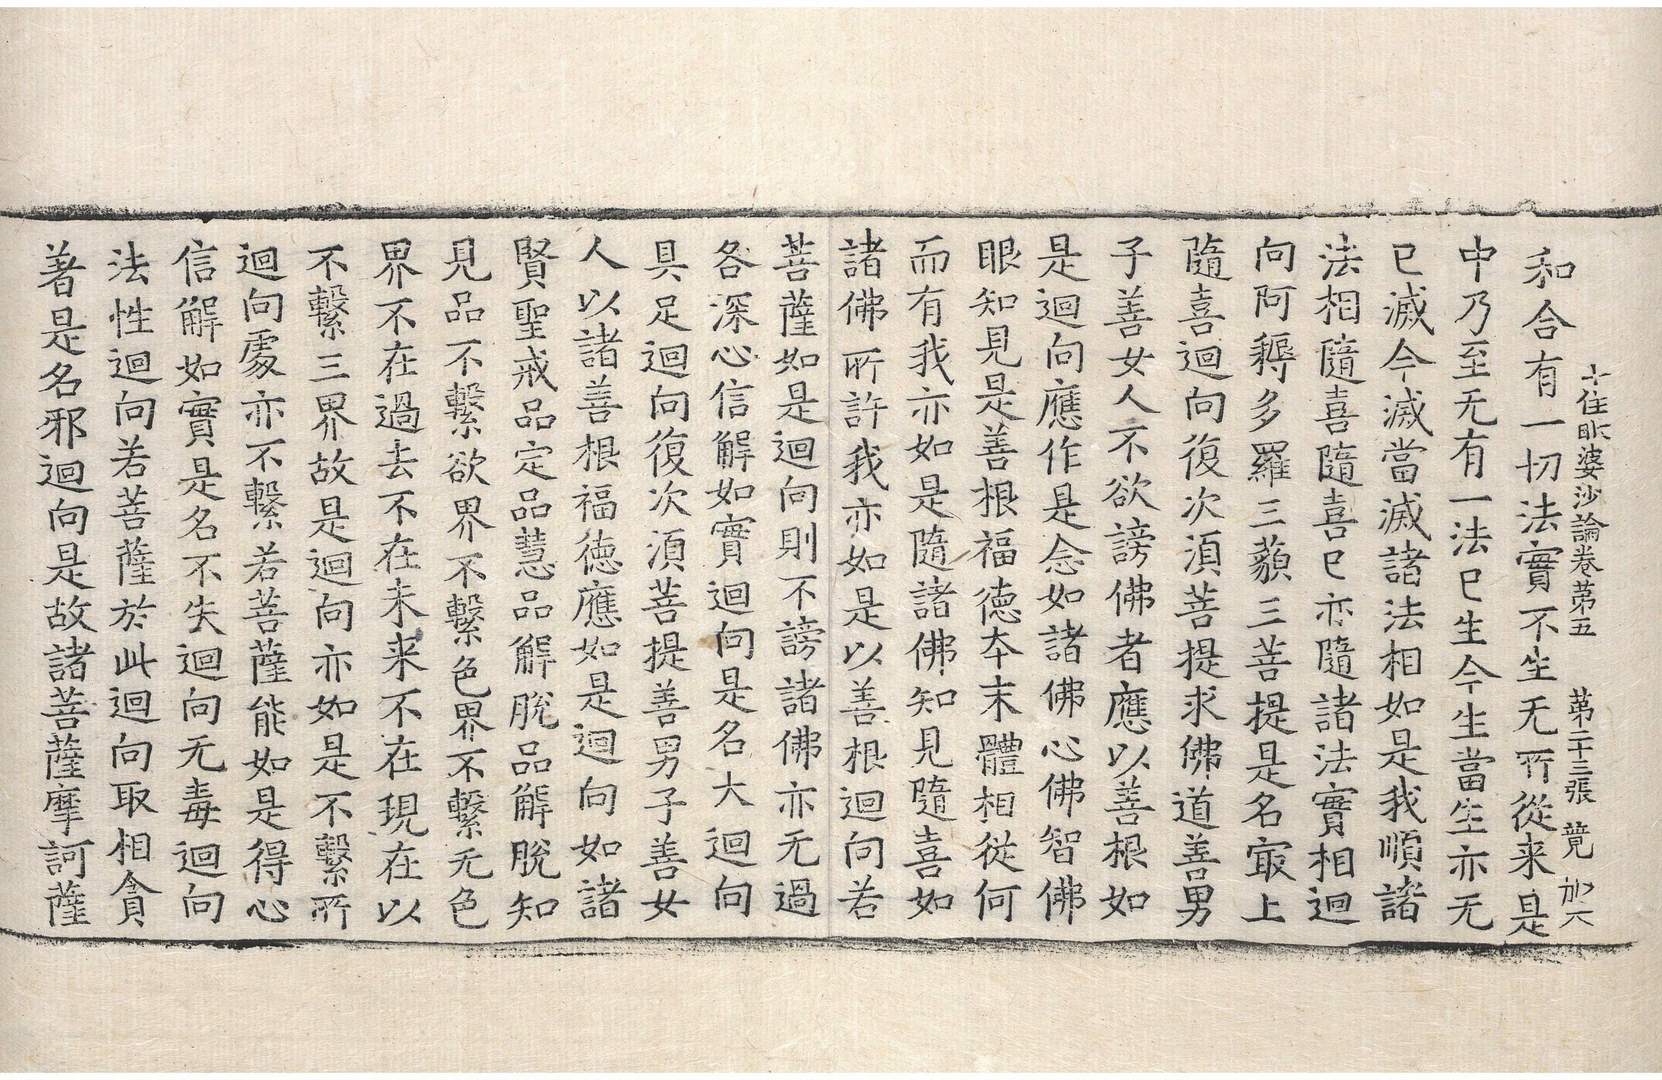 十住毗婆沙論卷第五　第二十三張　競　加六
和合有一切法實不生无所從来是
中乃至无有一法已生今生當生亦无
已滅今滅當滅諸法相如是我順諸
法相隨喜隨喜已亦隨諸法實相迴
向阿耨多羅三藐三菩提是名㝡上
隨喜迴向復次湏菩提求佛道善男
子善女人不欲謗佛者應以善根如
是迴向應作是念如諸佛心佛智佛
眼知見是善根福德本末體相從何
而有我亦如是隨諸佛知見隨喜如
諸佛所許我亦如是以善根迴向若
菩薩如是迴向則不謗諸佛亦无過
咎深心信解如實迴向是名大迴向
具足迴向復次湏菩提善男子善女
人以諸善根福德應如是迴向如諸
賢聖戒品定品慧品解脫品解脫知
見品不繫欲界不繫色界不繫无色
界不在過去不在未来不在現在以
不繫三界故是迴向亦如是不繫所
迴向處亦不繫若菩薩能如是得心
信解如實是名不失迴向无毒迴向
法性迴向若菩薩於此迴向取相貪
著是名邪迴向是故諸菩薩摩訶薩